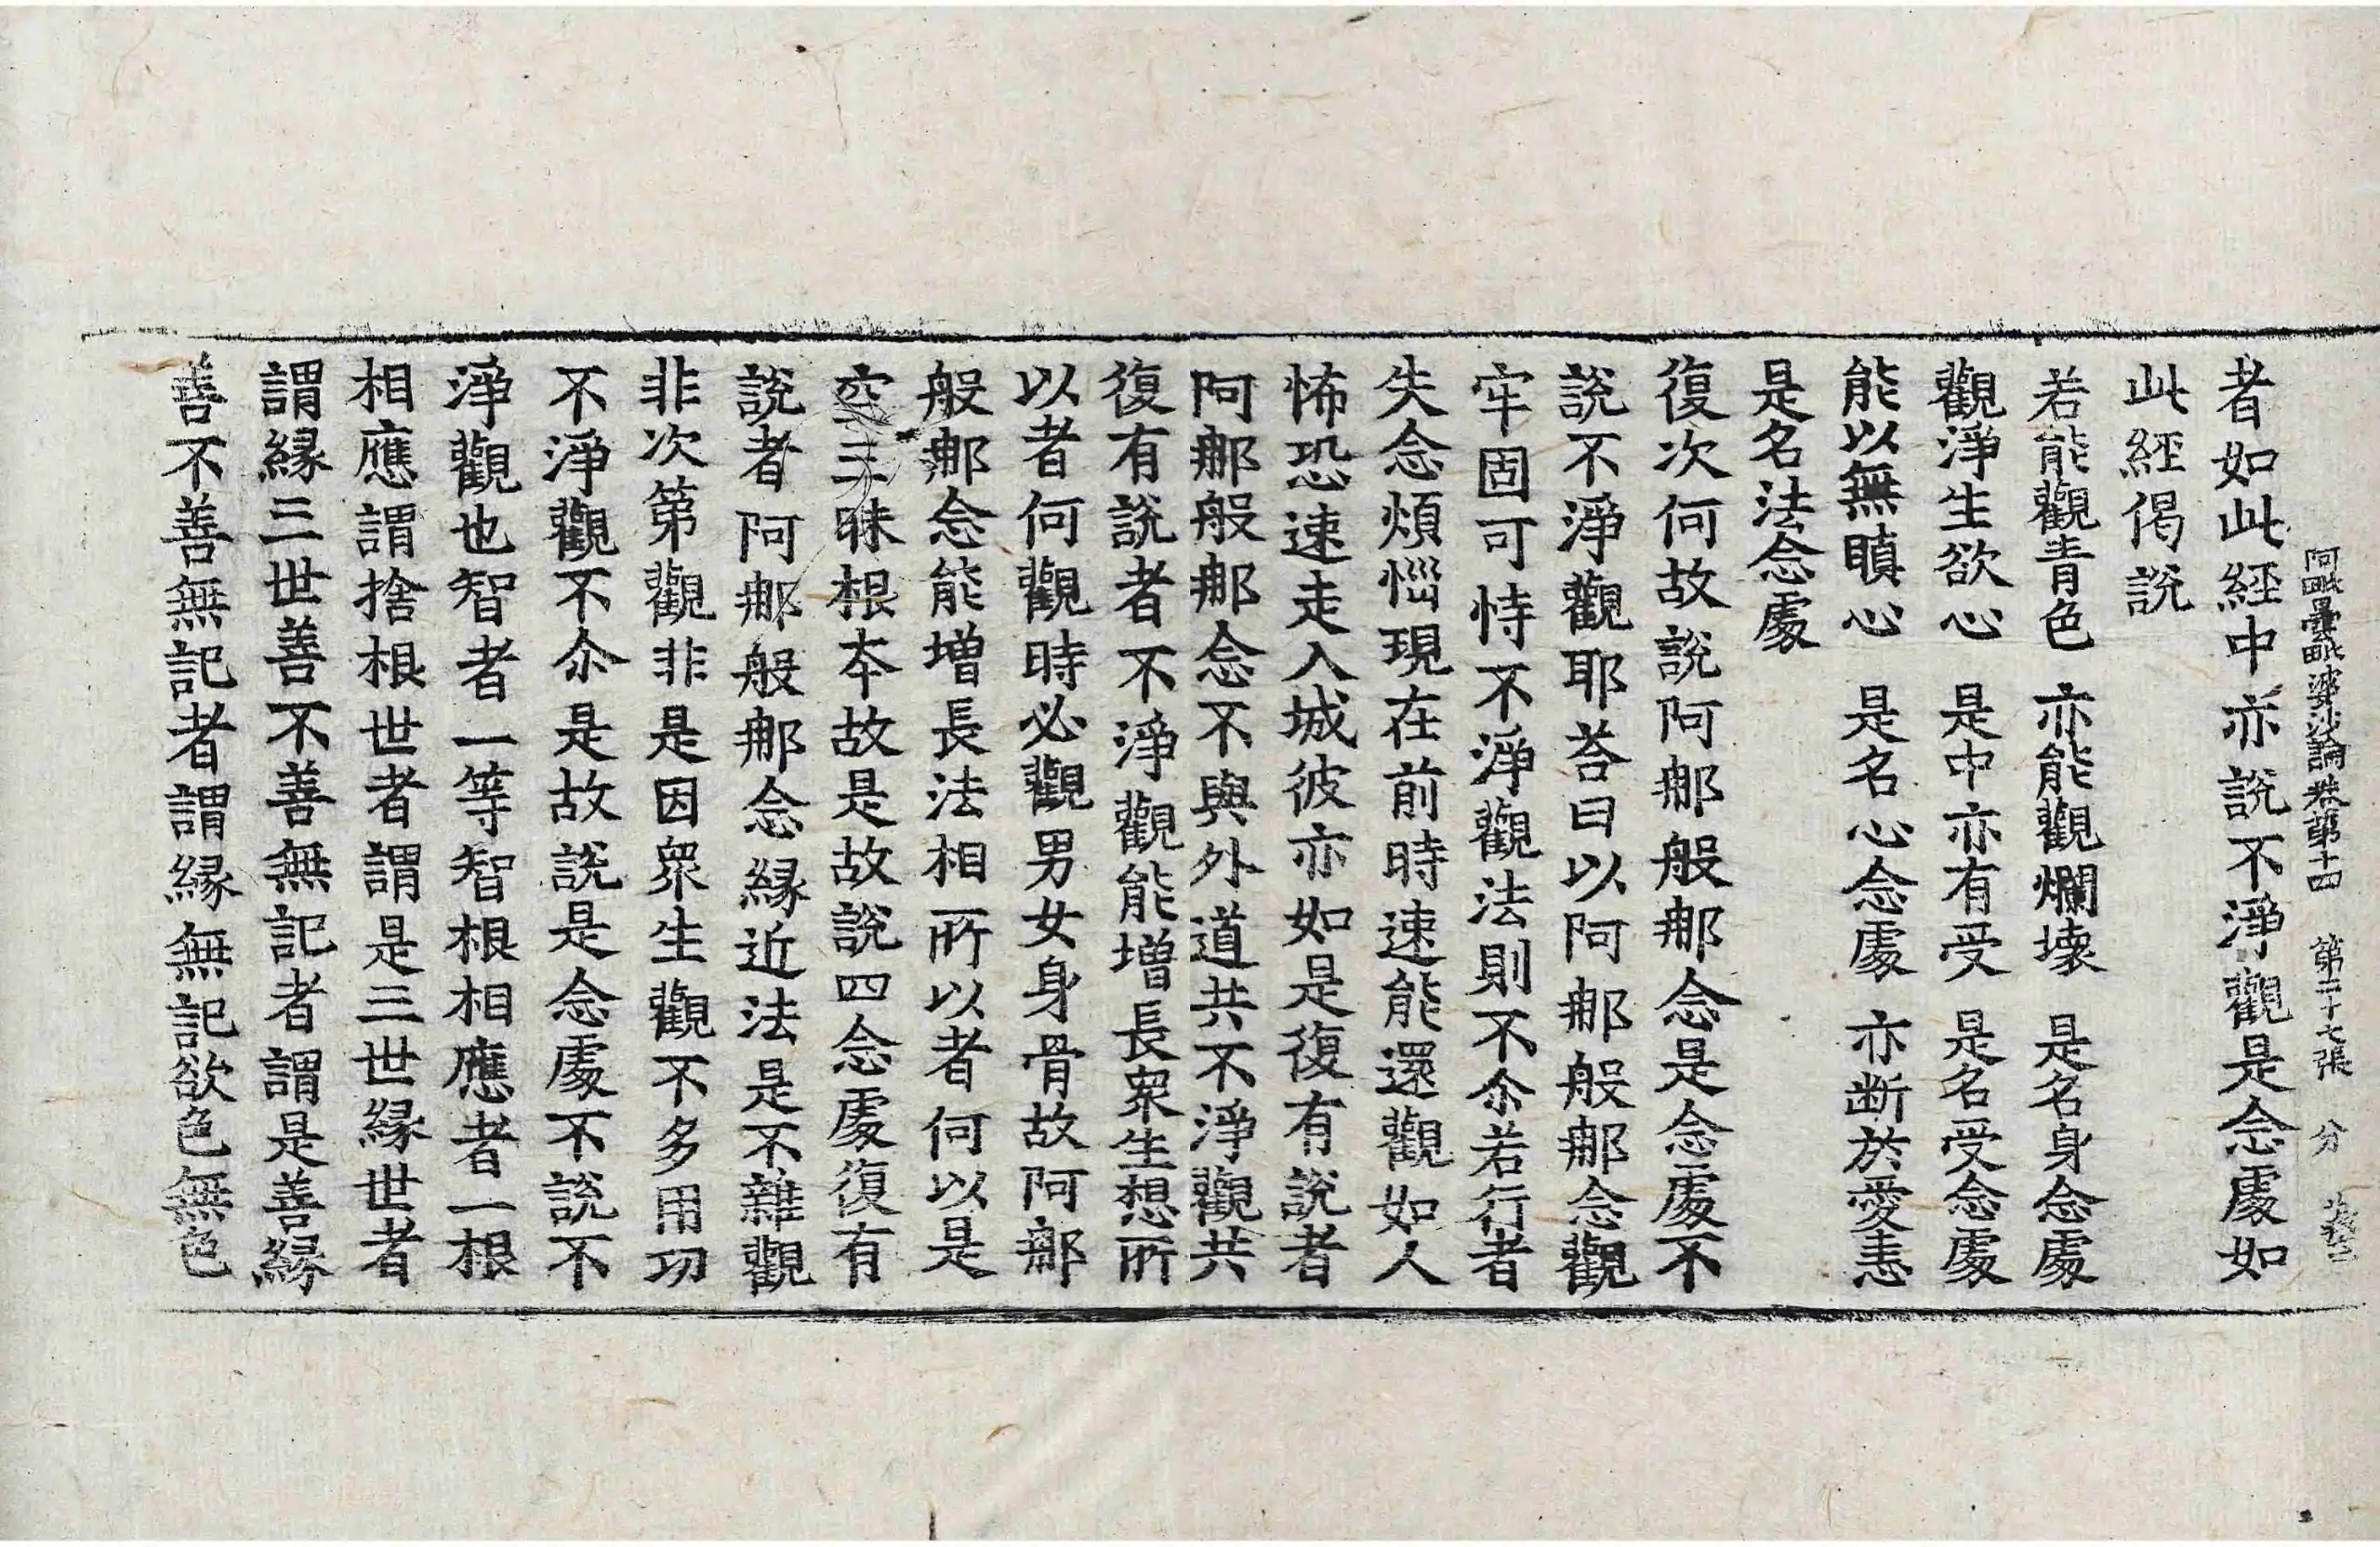 阿毗曇毗婆沙論卷第十四 第二十七張 分
者如此經中亦說不淨觀是念處如
此經偈說
若能觀青色 亦能觀爛壞 是名身念處
觀淨生欲心 是中亦有受 是名受念處
能以無瞋心 是名心念處 亦断於愛恚
是名法念處
復次何故說阿那般那念是念處不
說不淨觀耶荅曰以阿那般那念觀
牢固可恃不淨觀法則不尒若行者
失念煩惱現在前時速能還觀如人
怖恐速走入城彼亦如是復有說者
阿那般那念不與外道共不淨觀共
復有說者不淨觀能增長衆生想所
以者何觀時必觀男女身骨故阿那
般那念能增長法相所以者何以是
空三昧根本故是故說四念處復有
說者阿那般那念緣近法是不雜觀
非次第觀非是因衆生觀不多用功
不淨觀不尒是故說是念處不說不
淨觀也智者一等智根相應者一根
相應謂捨根世者謂是三世緣世者
謂緣三世善不善無記者謂是善緣
善不善無記者謂緣無記欲色無色